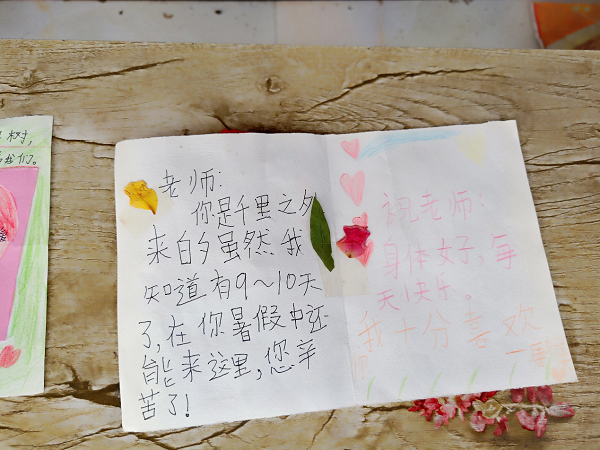 树,
我们。
老师:
你是千里之夕
来白夕虽然我
知道有9~10天
了,在你暑假中还
能来这里,您辛
苦了!
祝老师:
身体女子,每
天快乐。
我十分喜欢